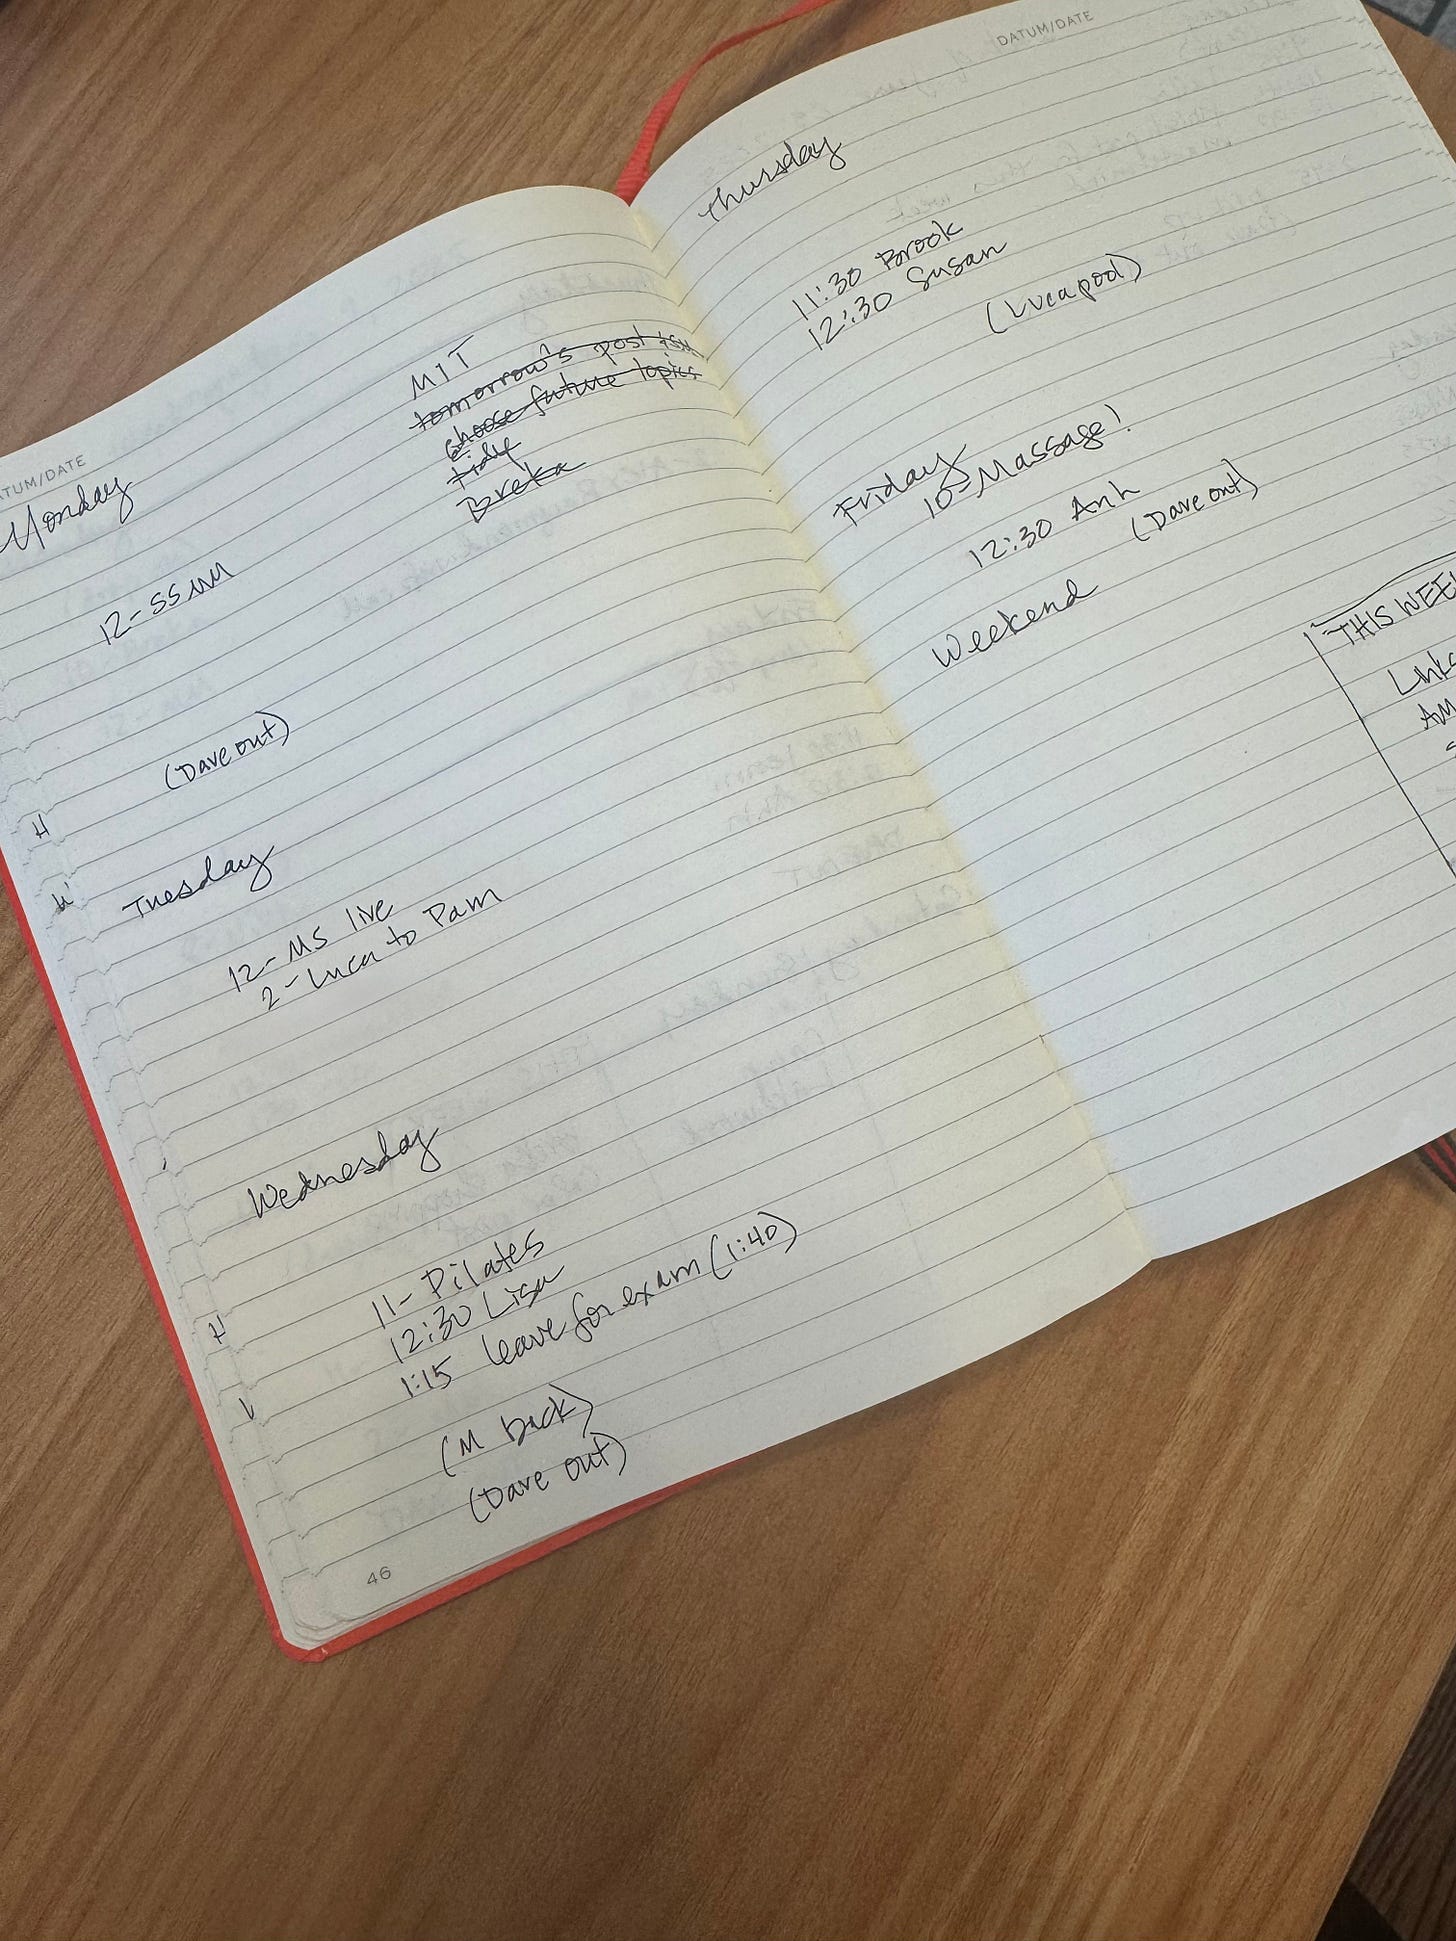 DATUM/DATE
Monday
MIT
tomorrow's post
choose future topics
tidy
Breka
12-SSIM
(Dave out)
Tuesday
12- MS live
2- Luca to Pam
Wednesday
11- Pilates
12:30 Lisa
1:15 leave for exam (1:40)
(M back)
(Dave out)
46
DATUM/DATE
Thursday
11:30 Brook
12:30 Susan
(Luca pool)
Friday
10-Massage!
12:30 Anh
(Dave out)
Weekend
THIS WEE